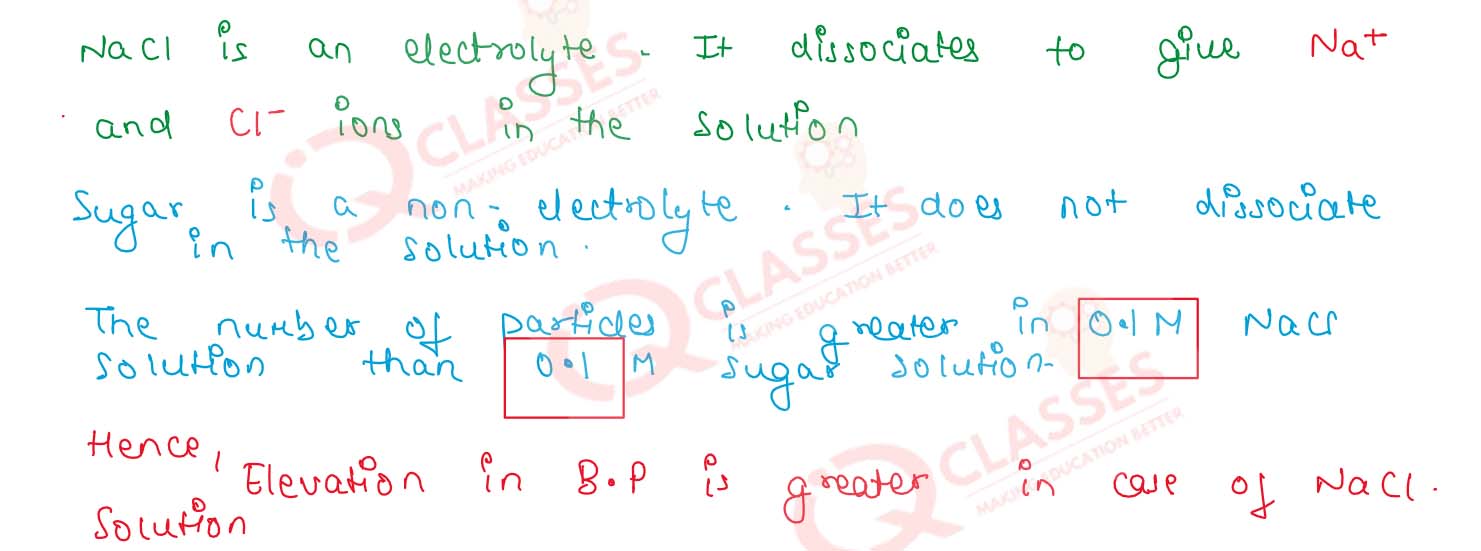 NaCl is an electrolyte. It dissociates to give Na+
and Cl- ions in the solution
Sugar is a non-electrolyte. It does not dissociate
in the solution.
The number of particles is greater in 0.1 M NaCl
solution than 0.1 M sugar solution-
Hence, Elevation in B.P is greater in case of NaCl.
Solution
IQ CLASSES
MAKING EDUCATION BETTER
Q CLASSES
MAKING EDUCATION BETTER
Q CLASSES
MAKING EDUCATION BETTER